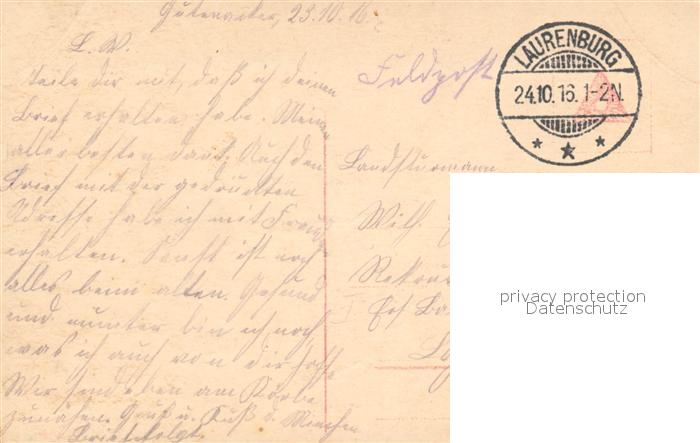 Gutenacker, 23.10.16.
L. W.
Teile dir mit, daß ich deinen
Brief erhalten habe. Meinen
allerbesten dank. Auch den
Brief mit der gedruckten
Adresse habe ich mit Freuden
erhalten. Sonst ist noch
alles beim alten. Gesund
und munter bin ich noch
was ich auch von dir hoffe.
Wir sind eben am Körbe
zunähen. Gruß u. Kuß v.
Brief folgt.
Feldpost
LAURENBURG
24.10.16. 1-2N.
Landsturmann
Wilh.
Ers Ba
privacy protection
Datenschutz